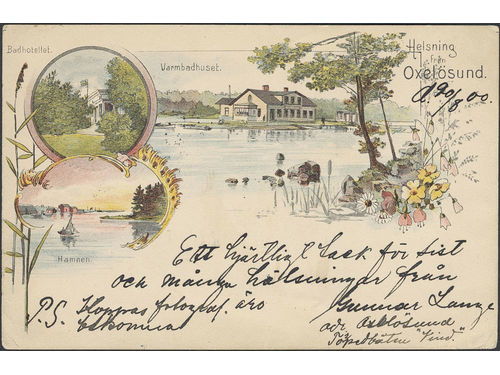 Badhotellet.
Varmbadhuset.
Helsning
från
Oxelösund.
d. 20/8 00
Hamnen.
Ett hjärtligt tack för sist
och många hälsningar från
Gunnar Lange
adr. Oxelösund
"Vind".
P.S. Hoppas fotograf. äro
välkomna